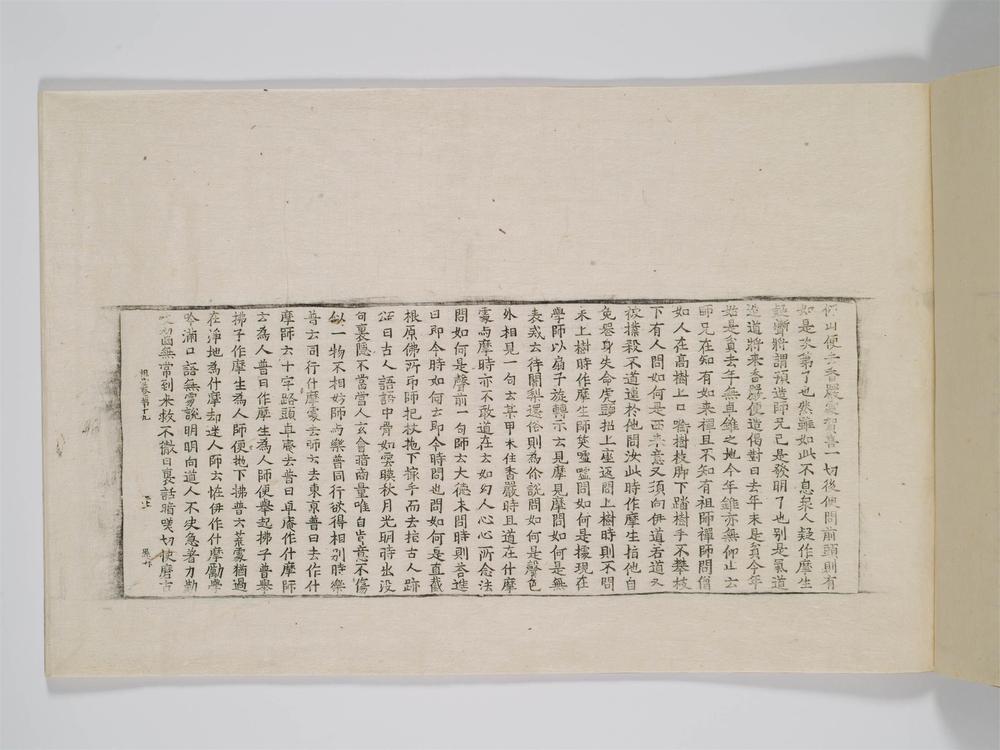 仰山便去香嚴處賀喜一切後便問前頭則有
如是次第了也然雖如此不息衆人疑作摩生
疑聻將謂預造師兄已是發明了也別是氣道
造道將來香嚴便造偈對曰去年未是貧今年
始是貧去年無卓錐之地今年錐亦無仰山云
師兄在知有如來禪且不知有祖師禪師問僧
如人在高樹上口銜樹枝脚下踏樹手不攀枝
下有人問如何是西來意又須向伊道若道又
被撲殺不道違於他問汝此時作摩生指他自
免喪身失命虎頭招上座返問上樹時則不問
未上樹時作摩生師笑噓噓問如何是據現在
學師以扇子旋轉示云見摩見摩問如何是無
表戒云待闍梨還俗則為你說問如何是聲色
外相見一句云某甲未住香嚴時且道在什摩
處与摩時亦不敢道在云如幻人心心所念法
問如何是聲前一句師云大德未問時則荅進
曰即今時如何云即今時問也問如何是直截
根原佛所印師把杖拋下撩手而去 古人跡
曰古人語語中骨如雲暎秋月光明時出沒
句裏隱不當當人玄會暗商量唯自肯意不傷
似一物不相妨師与樂普同行欲得相別時樂
普云同行什摩處去師云去東京普曰去作什
摩師云十字路頭卓庵去普曰卓庵作什摩師
云為人普曰作摩生為人師便舉起拂子普舉
拂子作摩生為人師便拋下拂普云藂處猶過
在淨地為什摩却迷人師云恠伊作什摩勵學
吟滿口語無處說明明向道人不決急著力勤
齧無常到來救不徹日裏話暗嗟切 磨古
祖堂卷第十九